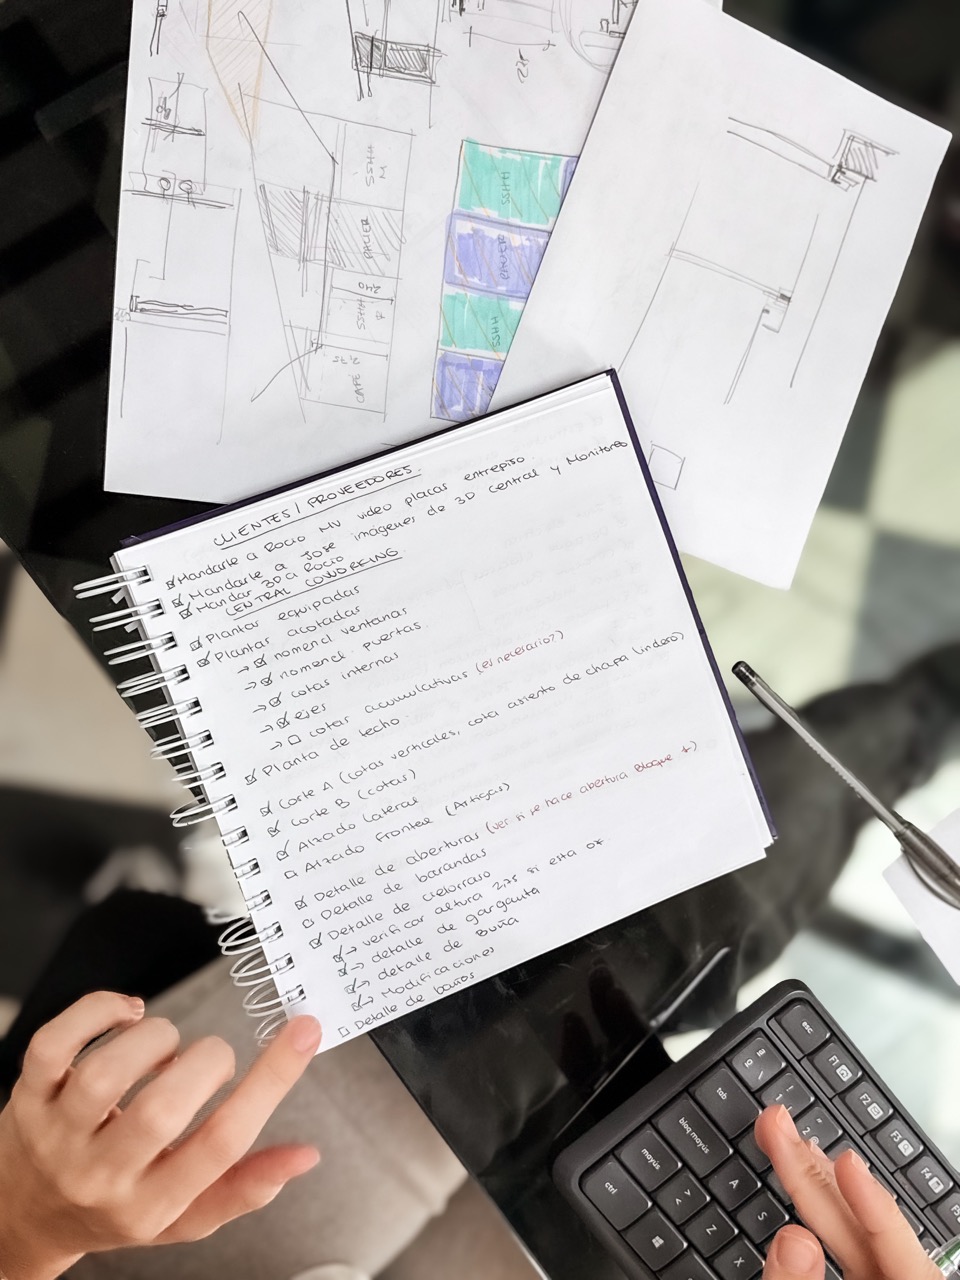 CLIENTES / PROVEEDORES.
Mandarle a Rocio MV video placas entrepiso.
Mandarle a José imágenes de 3D Central y Monitoreo
Mandar 3D a Rocio
CENTRAL COWORKING
Plantas equipadas
Plantas acotadas
→ nomencl ventanas
→ nomencl. puertas.
→ cotas internas
→ ejes
→ cotas acumulativas (es necesario?)
Planta de techo.
Corte A (cotas verticales, cota asiento de chapa (lindero)
Corte B (cotas)
Alzado Lateral
Alzado Frontal (Artigas)
Detalle de aberturas (ver si se hace abertura Bloque *)
Detalle de barandas
Detalle de cielorraso
→ verificar altura 2,75 si esta ok
→ detalle de garganta
→ detalle de Buña
→ Modificaciones
Detalle de baños
SSHH
M
PALIER
2,40
SSHH
F
2,75
CAFE
SSHH
PALIER
SSHH
esc
F1
F2
F3
F4
F5
ª
º
\
!
1
"
2
@
tab
bloq mayús
mayús
ctrl
A
S
>
<
Z
X